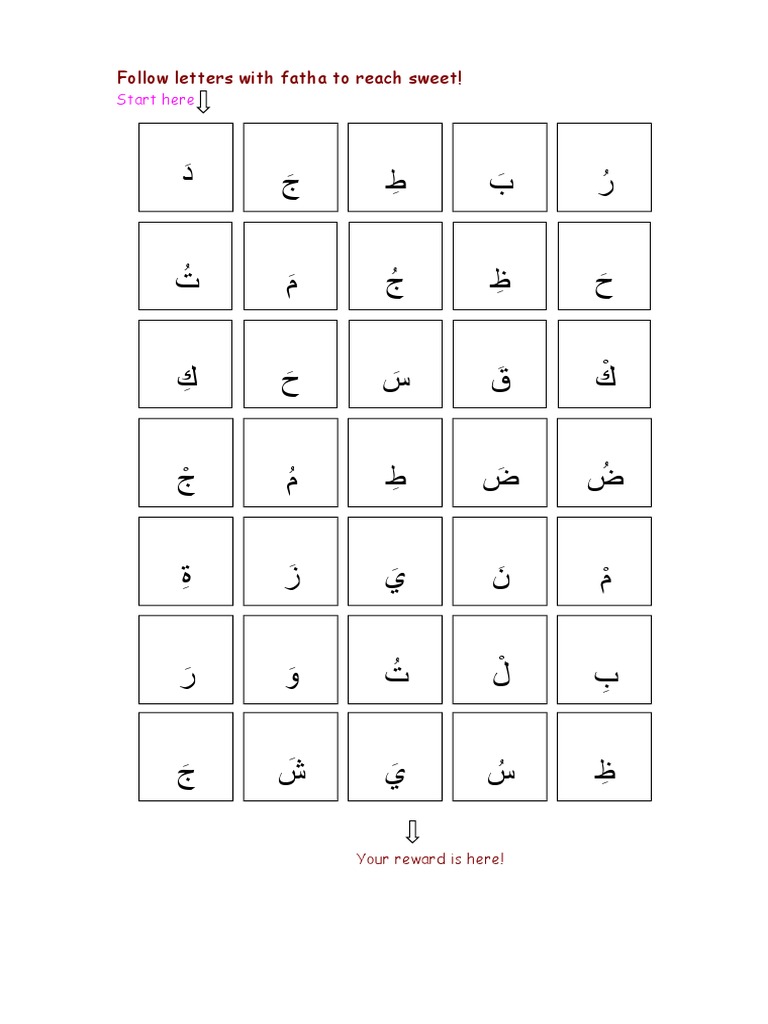 Follow letters with fatha to reach sweet!
Start here
دَ جَ طِ بَ رُ
تُ مَ جُ ظِ حَ
كِ حَ سَ قَ كْ
جْ مُ طِ ضَ ضُ
ةِ زَ يَ نَ مْ
رَ وَ تُ لْ بِ
جَ شَ يَ سُ ظِ
Your reward is here!